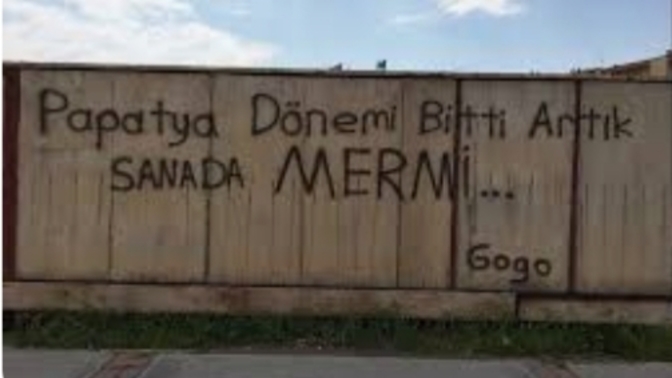 Papatya Dönemi Bitti Artık
SANADA MERMİ...
Gogo